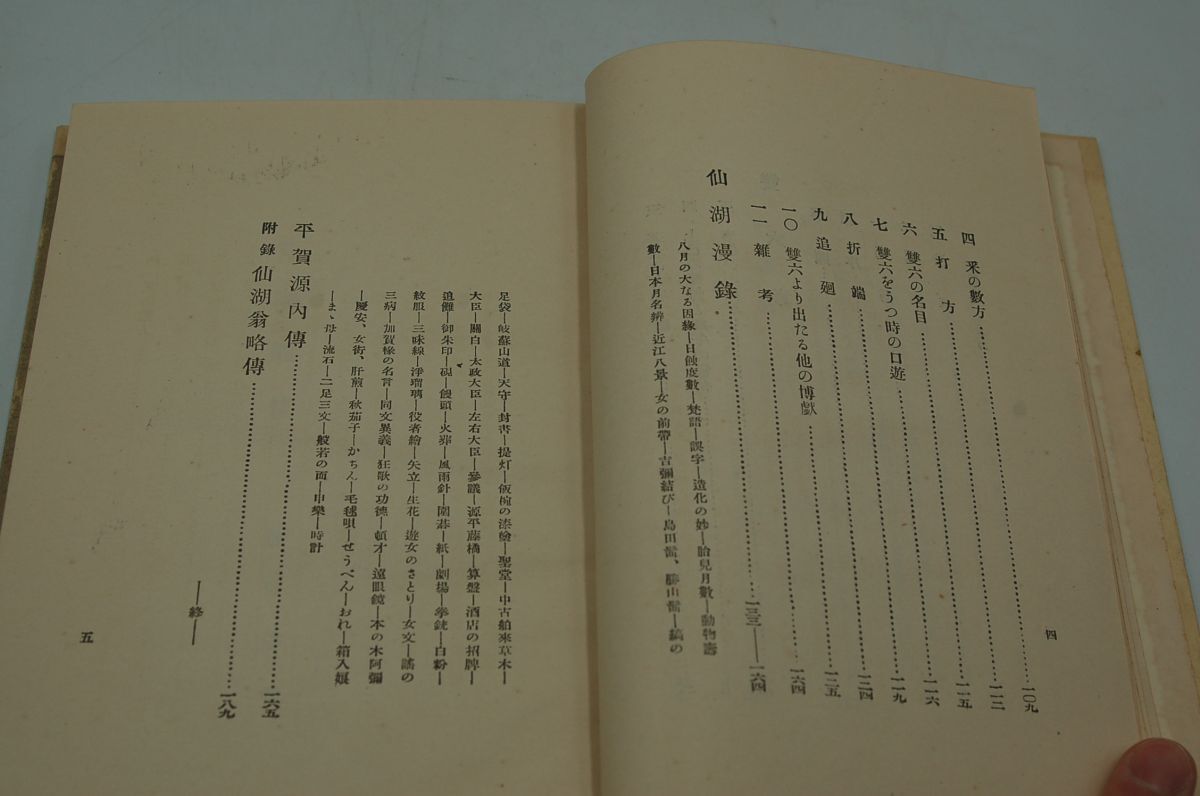 四 釆の數方……一〇九
五 打方……一一二
六 雙六の名目……一一五
七 雙六をうつ時の口遊……一一六
八 折端……一一九
九 追廻……一二四
一〇 雙六より出たる他の博戲……一二五
一一 雜考……一六四
仙湖漫錄……一三三—一六四
八月の大なる因緣—日蝕度數—梵語—誤字—造化の妙—胎兒月數—動物壽
數—日本月名辨—近江八景—女の前帶—吉彌結び—島田髷、勝山髷—縞の
四
足袋—岐蘇山道—天守—封書—提灯—飯椀の漆繪—聖堂—中古舶來草木—
大臣—關白—太政大臣—左右大臣—參議—源平藤橘—算盤—酒店の招牌—
追儺—御朱印—硯—饅頭—火葬—風雨針—圍碁—紙—劇場—拳銃—白粉—
紋服—三味線—淨瑠璃—役者繪—矢立—生花—遊女のさとり—女文—謠の
三病—加賀椽の名言—同文異義—狂歌の功德—頓才—遠眼鏡—本の木阿彌
—慶安、女衒、肝煎—秋茄子—かちん—毛毬唄—せうべん—おれ—箱入娘
—まゝ母—流石—二足三文—般若の面—申樂—時計
平賀源內傳……一六五
附錄 仙湖翁略傳……一八九
—終—
五